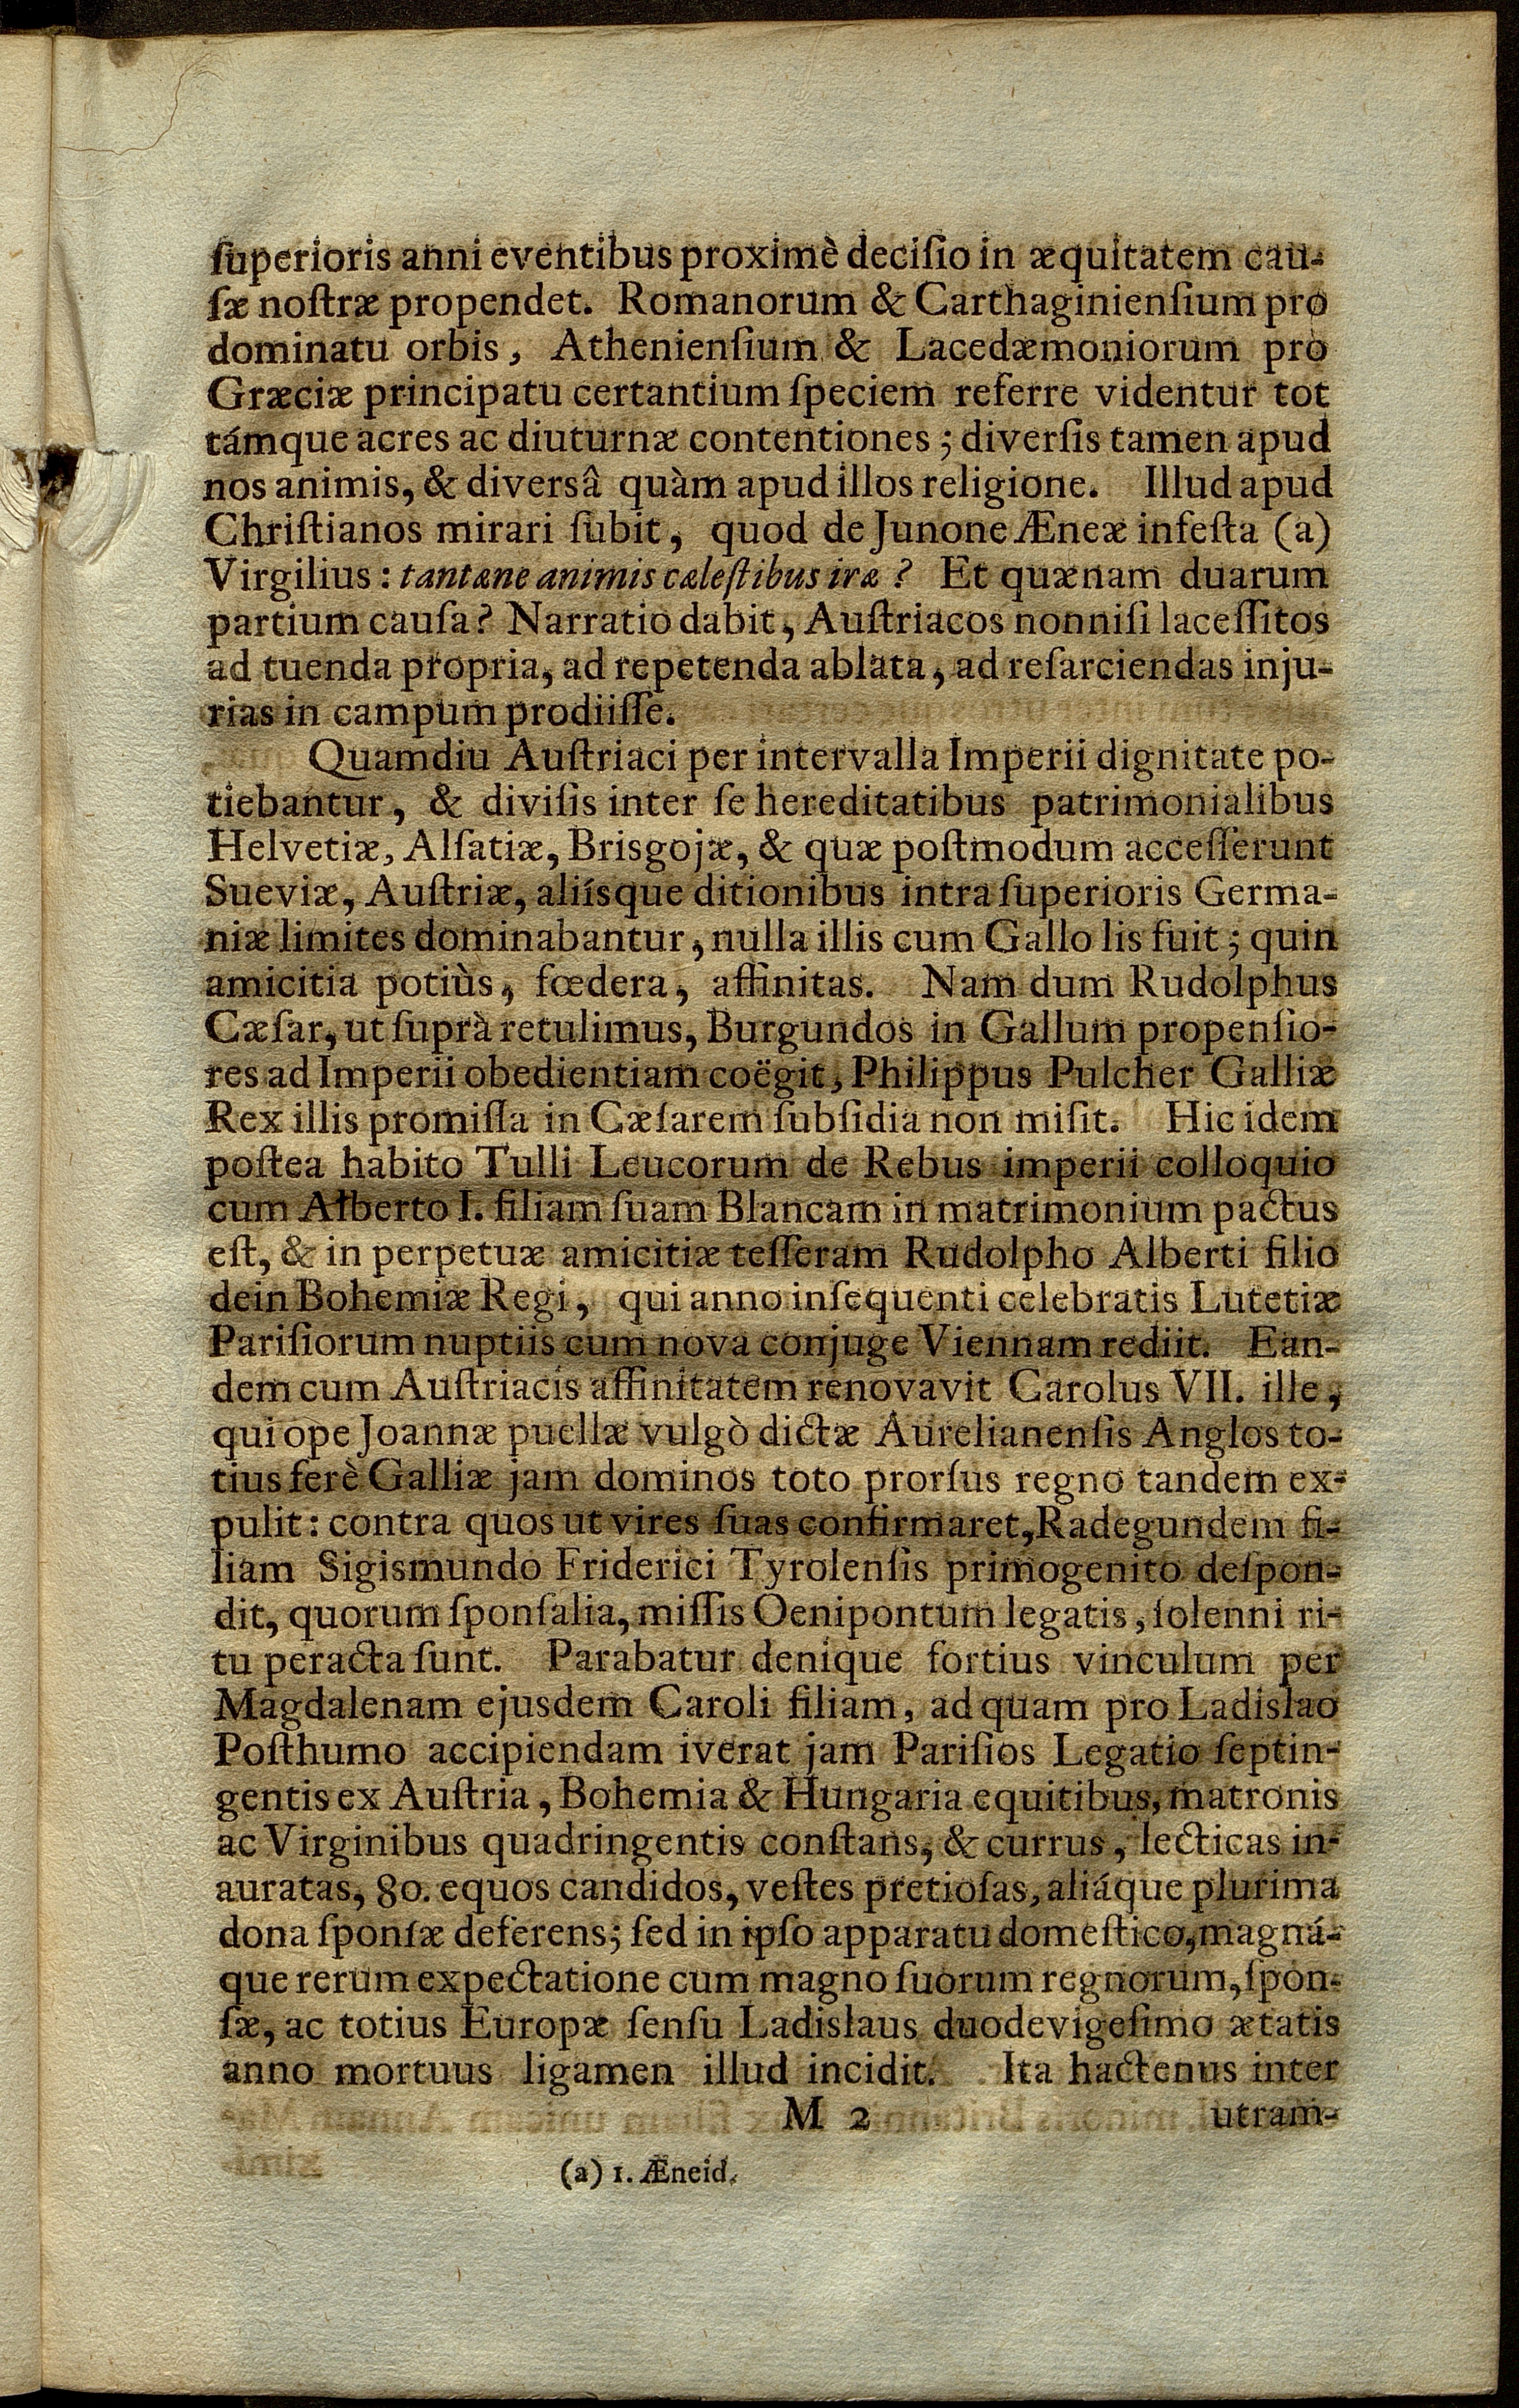 ſuperioris anni eventibus proximè deciſio in æquitatem cau-
ſæ noſtræ propendet. Romanorum & Carthaginienſium pro
dominatu orbis, Athenienſium & Lacedæmoniorum pro
Græciæ principatu certantium ſpeciem referre videntur tot
támque acres ac diuturnæ contentiones; diverſis tamen apud
nos animis, & diversâ quàm apud illos religione. Illud apud
Chriſtianos mirari ſubit, quod de Junone Æneæ infeſta (a)
Virgilius: tantæne animis cæleſtibus iræ? Et quænam duarum
partium cauſa? Narratio dabit, Auſtriacos nonniſi laceſſitos
ad tuenda propria, ad repetenda ablata, ad reſarciendas inju-
rias in campum prodiiſſe.
Quamdiu Auſtriaci per intervalla Imperii dignitate po-
tiebantur, & diviſis inter ſe hereditatibus patrimonialibus
Helvetiæ, Alſatiæ, Brisgojæ, & quæ poſtmodum acceſſerunt
Sueviæ, Auſtriæ, aliísque ditionibus intra ſuperioris Germa-
niæ limites dominabantur, nulla illis cum Gallo lis fuit; quin
amicitia potiùs, fœdera, affinitas. Nam dum Rudolphus
Cæſar, ut ſuprà retulimus, Burgundos in Gallum propenſio-
res ad Imperii obedientiam coëgit, Philippus Pulcher Galliæ
Rex illis promiſſa in Cæſarem ſubſidia non miſit. Hic idem
poſtea habito Tulli Leucorum de Rebus imperii colloquio
cum Alberto I. filiam ſuam Blancam in matrimonium pactus
eſt, & in perpetuæ amicitiæ teſſeram Rudolpho Alberti filio
dein Bohemiæ Regi, qui anno inſequenti celebratis Lutetiæ
Pariſiorum nuptiis cum nova conjuge Viennam rediit. Ean-
dem cum Auſtriacis affinitatem renovavit Carolus VII. ille,
qui ope Joannæ puellæ vulgò dictæ Aurelianenſis Anglos to-
tius ferè Galliæ jam dominos toto prorſus regno tandem ex-
pulit: contra quos ut vires ſuas confirmaret, Radegundem fi-
liam Sigismundo Friderici Tyrolenſis primogenito deſpon-
dit, quorum ſponſalia, miſſis Oenipontum legatis, ſolenni ri-
tu peracta ſunt. Parabatur denique fortius vinculum per
Magdalenam ejusdem Caroli filiam, ad quam pro Ladislao
Poſthumo accipiendam iverat jam Pariſios Legatio ſeptin-
gentis ex Auſtria, Bohemia & Hungaria equitibus, matronis
ac Virginibus quadringentis conſtans, & currus, lecticas in-
auratas, 80. equos candidos, veſtes pretioſas, aliáque plurima
dona ſponſæ deferens; ſed in ipſo apparatu domeſtico, magná-
que rerum expectatione cum magno ſuorum regnorum, ſpon-
ſæ, ac totius Europæ ſenſu Ladislaus duodevigeſimo ætatis
anno mortuus ligamen illud incidit. Ita hactenus inter
M 2 utram-
(a) 1. Æneid.